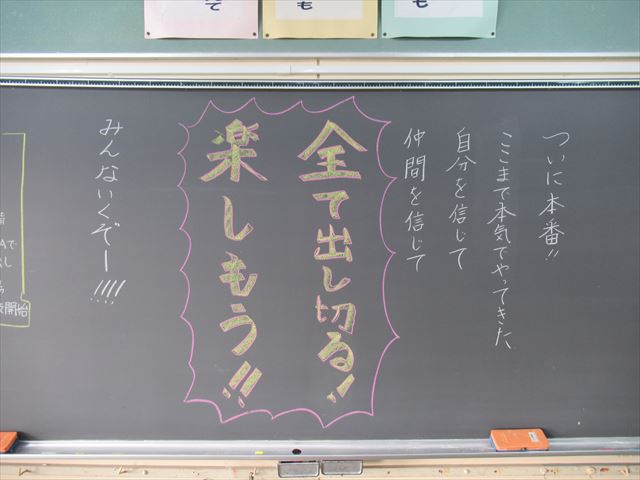 ついに本番!!
ここまで本気でやってきた、
自分を信じて
仲間を信じて
全て出し切る!
楽しもう!!
みんないくぞー!!!!
開始